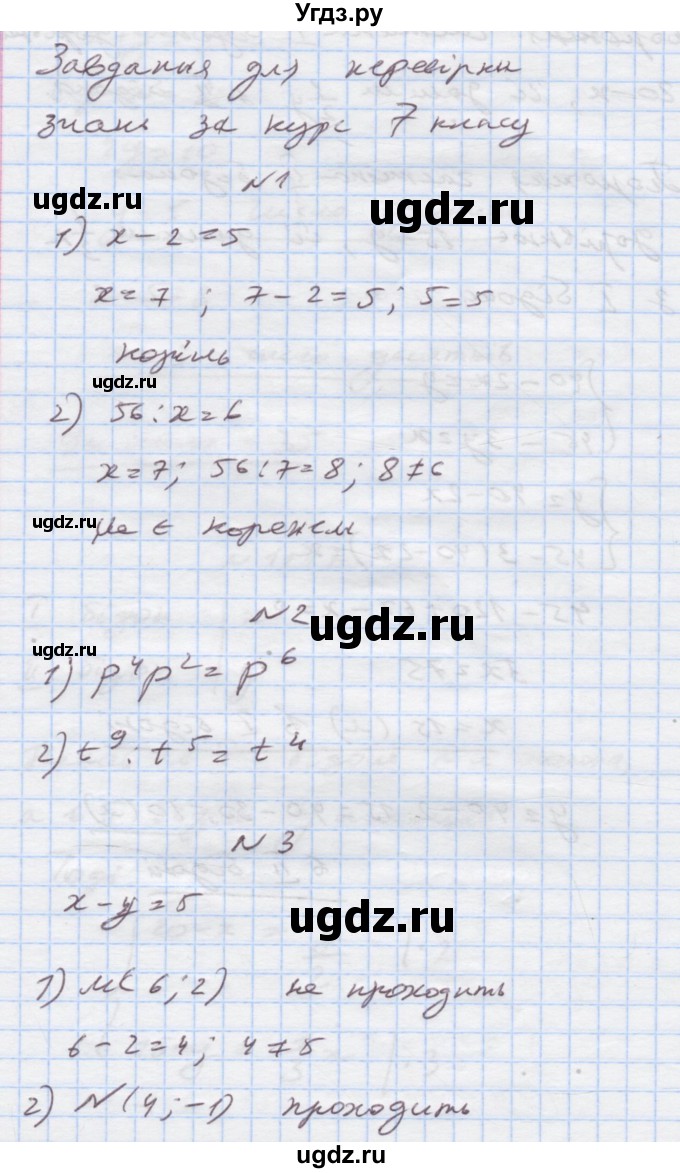 Угдз.ру
Завдання для перевірки
знань за курс 7 класу
№1
ugdz.ru
ugdz.ru
1) x - 2 = 5
x = 7 ; 7 - 2 = 5 ; 5 = 5
корінь
ugdz.ru
2) 56 : x = 6
x = 7 ; 56 : 7 = 8 ; 8 ≠ 6
ugdz.ru
не є коренем
№2
ugdz.ru
ugdz.ru
1) p⁴p² = p⁶
2) t⁹ : t⁵ = t⁴
№3
x - y = 5
ugdz.ru
1) M(6 ; 2) не проходить
6 - 2 = 4 ; 4 ≠ 5
2) N(4 ; -1) проходить
ugdz.ru
ugdz.ru